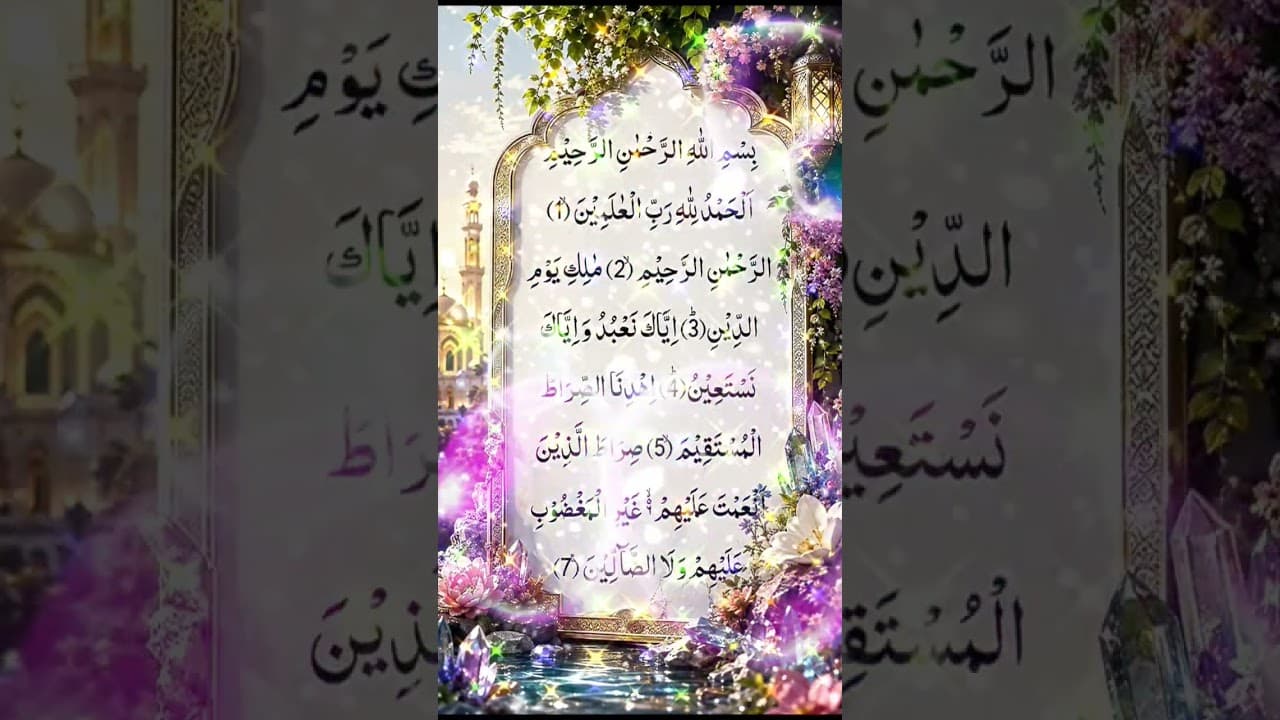 بِسْمِ اللّٰهِ الرَّحْمٰنِ الرَّحِیْمِ
اَلْحَمْدُ لِلّٰهِ رَبِّ الْعٰلَمِیْنَ ۙ(1)
الرَّحْمٰنِ الرَّحِیْمِ ۙ(2) مٰلِكِ یَوْمِ
الدِّیْنِ ؕ(3) اِیَّاكَ نَعْبُدُ وَ اِیَّاكَ
نَسْتَعِیْنُ ؕ(4) اِهْدِنَا الصِّرَاطَ
الْمُسْتَقِیْمَ ۙ(5) صِرَاطَ الَّذِیْنَ
اَنْعَمْتَ عَلَیْهِمْ ۙ۬ غَیْرِ الْمَغْضُوْبِ
عَلَیْهِمْ وَ لَا الضَّآلِّیْنَ (7)